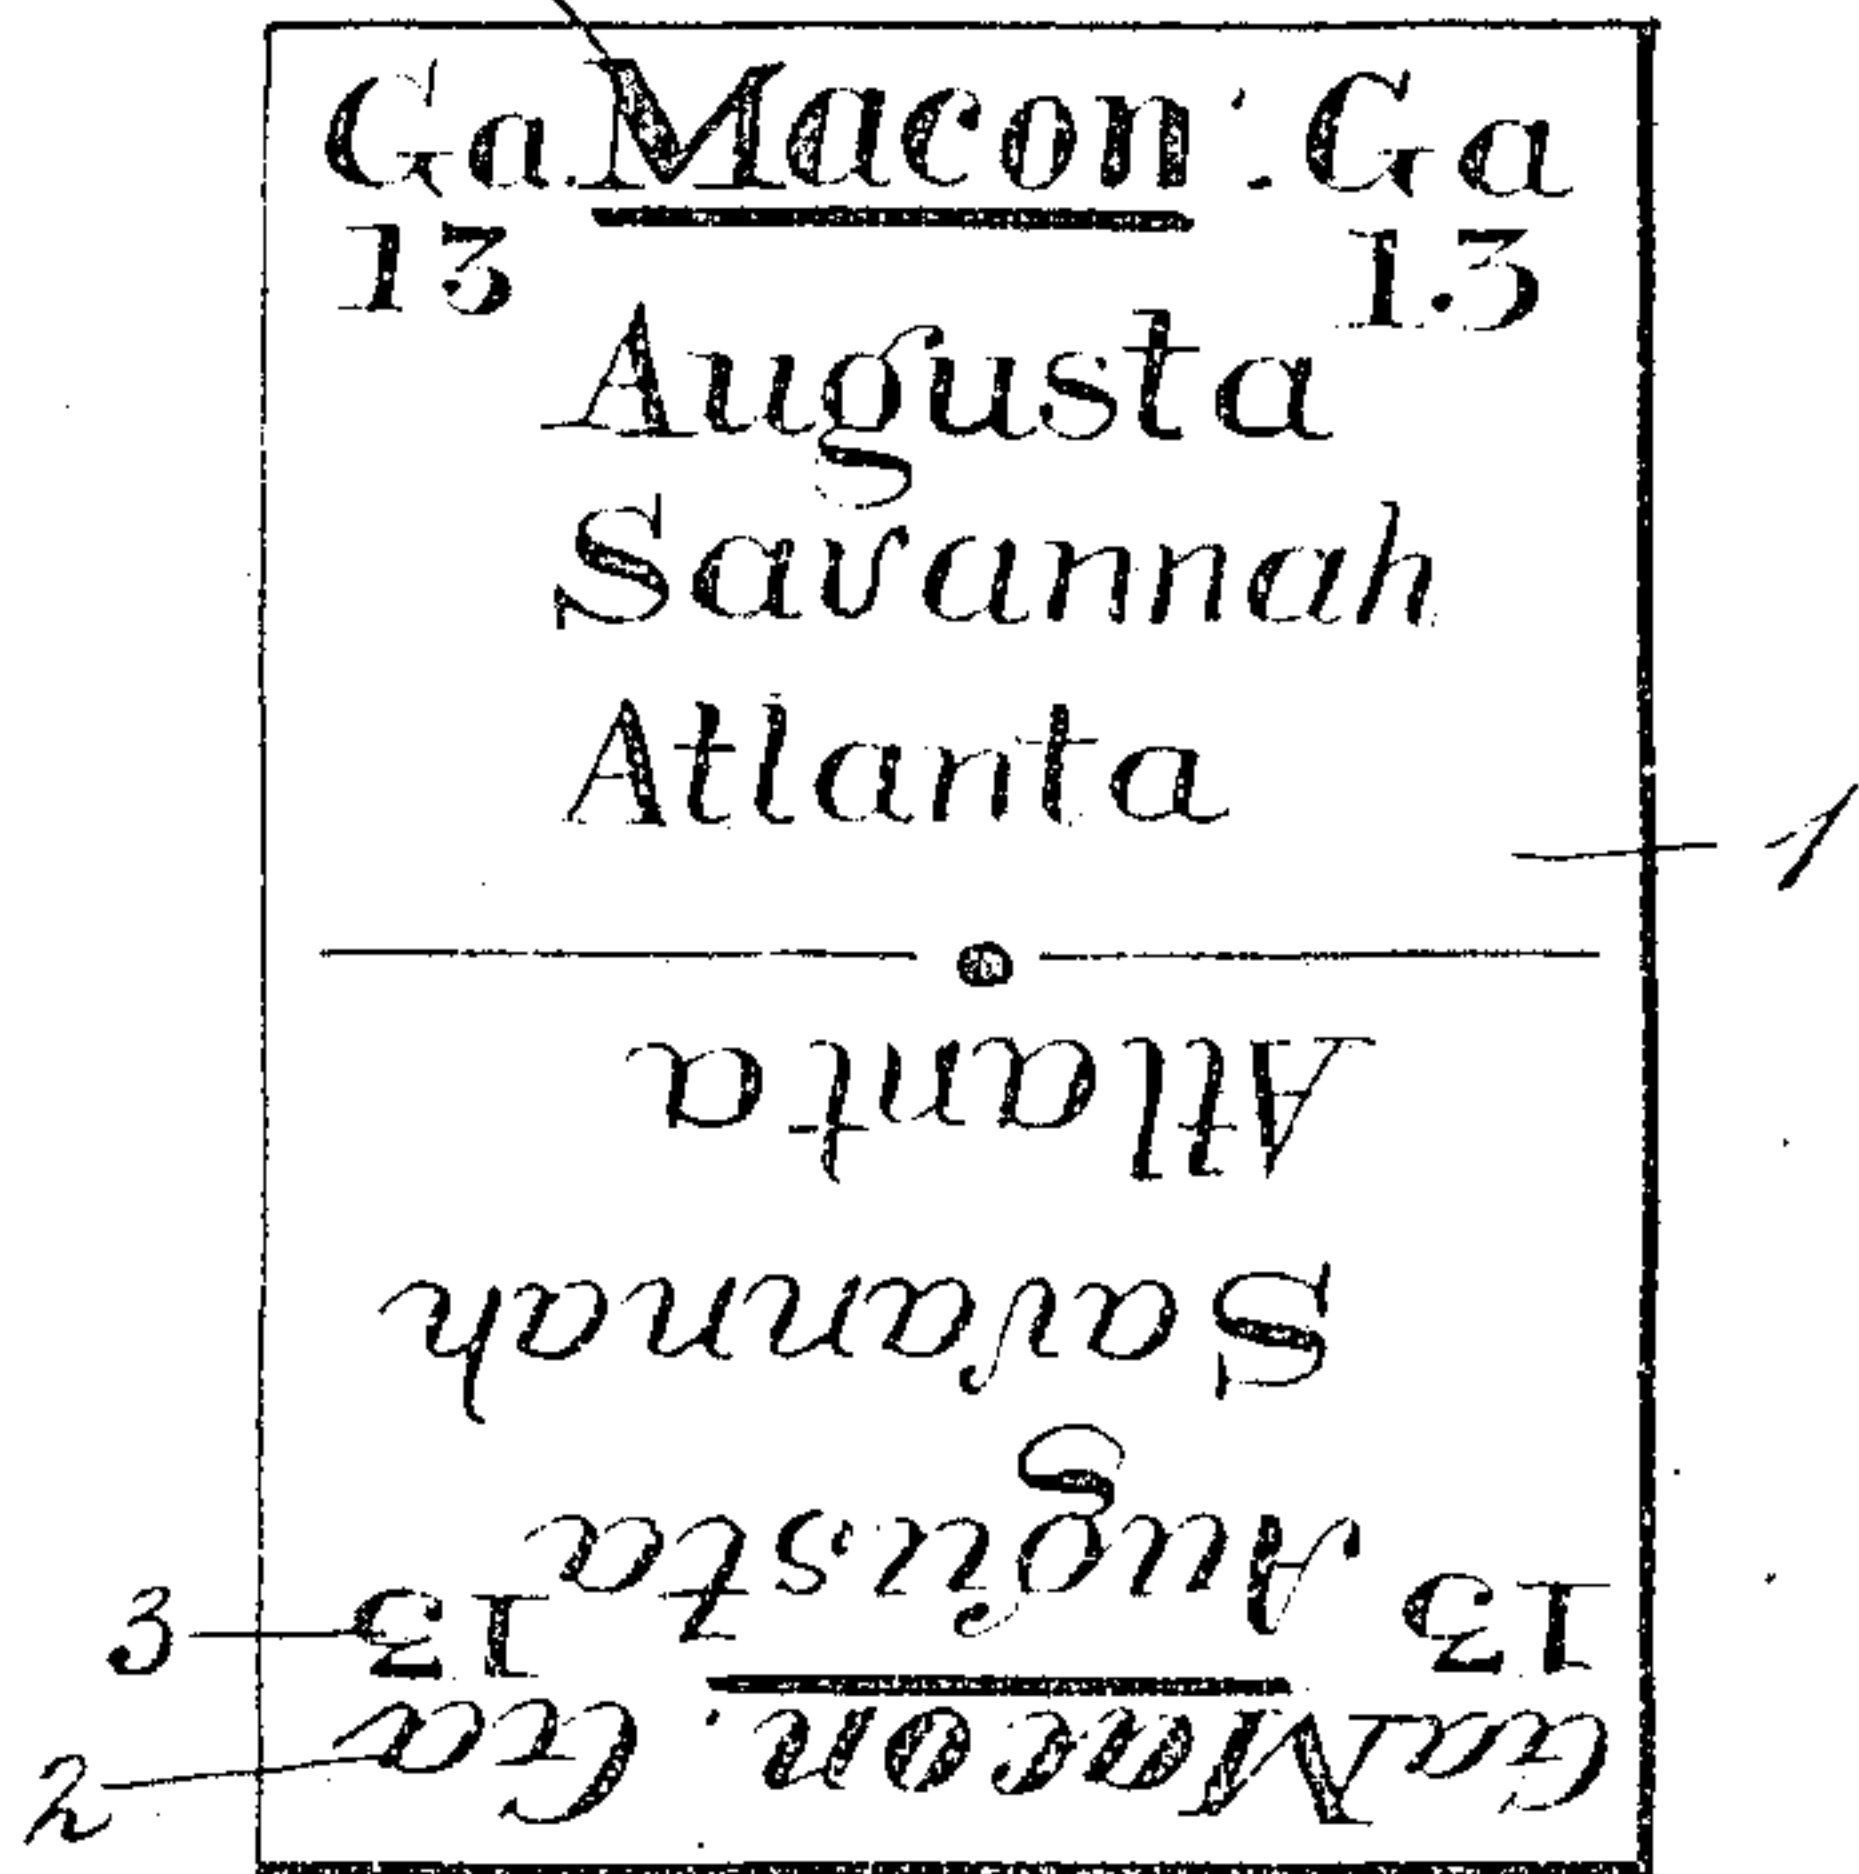 Ga. Macon. Ga
13 13
Augusta
Savannah
Atlanta
1
Atlanta
Savannah
Augusta
3 13 13
2 Ga Macon. Ga